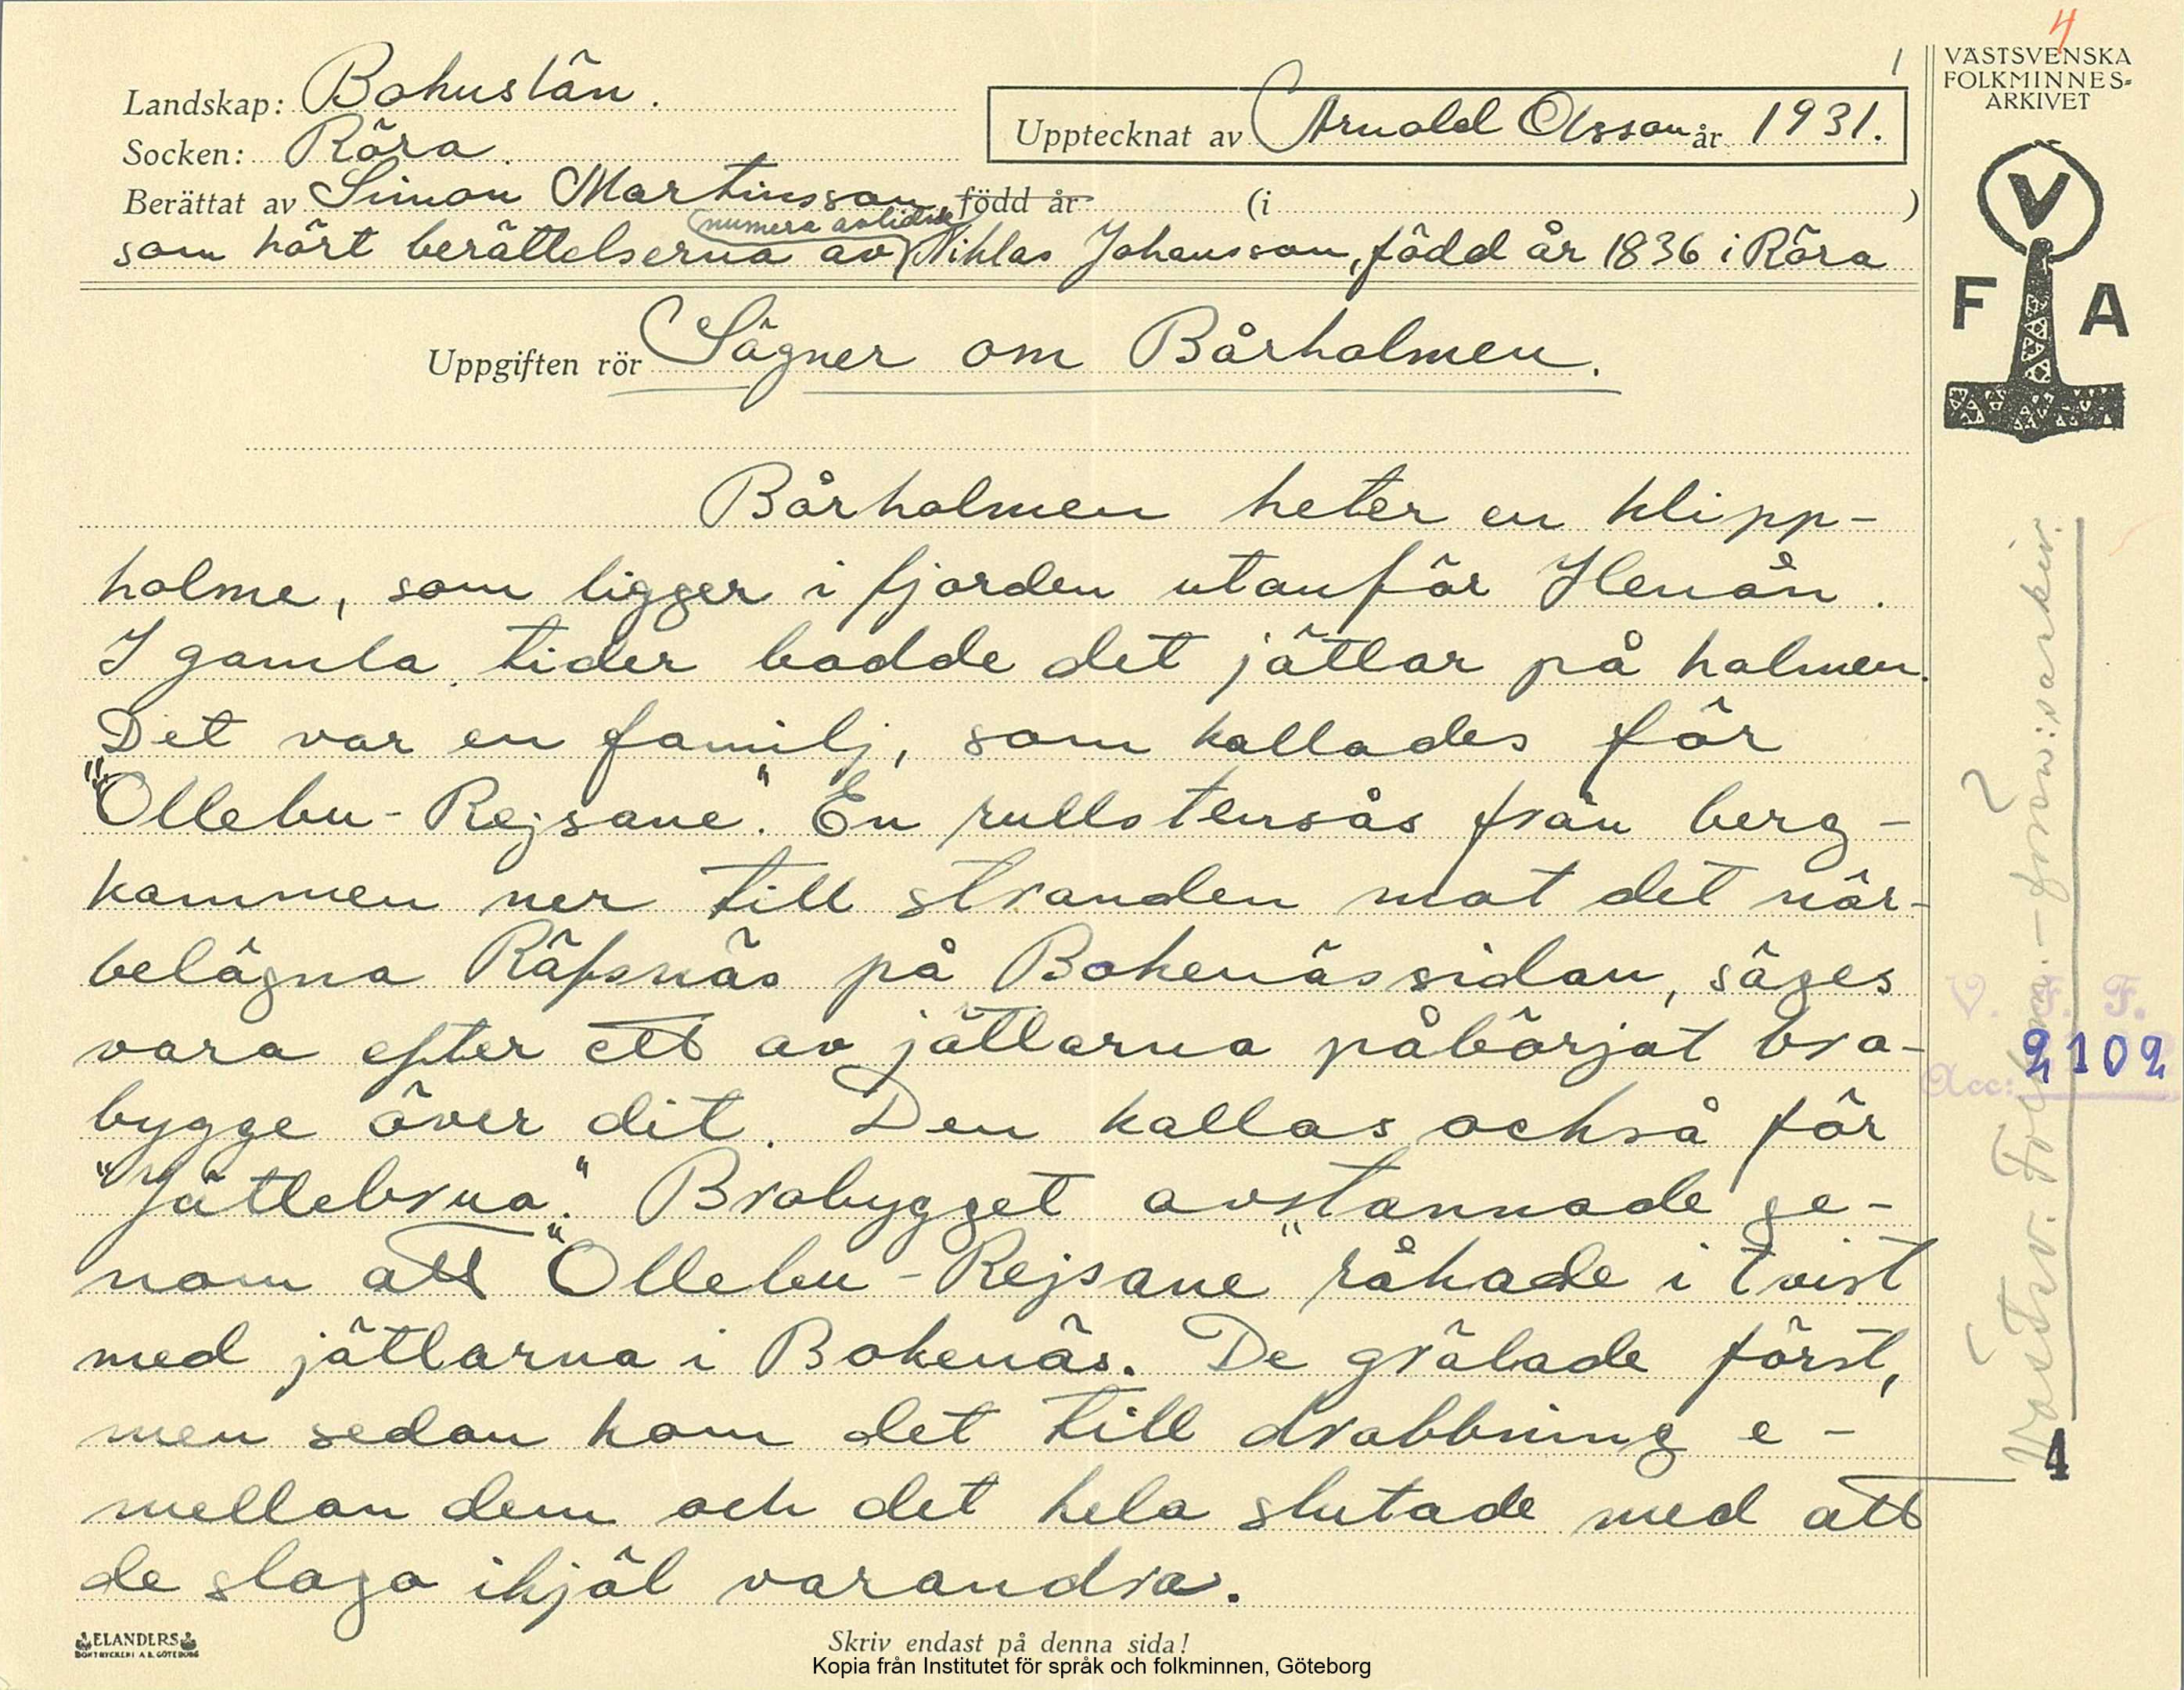 4
1
VÄSTSVENSKA
FOLKMINNES=
ARKIVET
Landskap: Bohuslän.
Upptecknat av Arnold Olsson år 1931.
Socken: Röra.
Berättat av Simon Martinsson, född år (i )
(numera avlidne
som hört berättelserna av Niklas Johansson, född år 1836 i Röra
V
F A
Uppgiften rör Sägner om Bårholmen.
Bårholmen heter en klipp-
holme, som ligger i fjorden utanför Henån.
I gamla tider bodde det jättar på holmen.
Det var en familj, som kallades för
"Ollebu-Rejsane". En rullstensås från berg-
kammen ner till stranden mot det när-
belägna Räfsnäs på Bokenässidan, säges
vara efter ett av jättarna påbörjat bro-
bygge över dit. Den kallas också för
"Jättebrua". Brobygget avstannade ge-
nom att "Ollebu-Rejsane" råkade i tvist
med jättarna i Bokenäs. De grälade först,
men sedan kom det till drabbning e-
mellan dem och det hela slutade med att
de slogo ihjäl varandra.
V. F. F.
Acc: 2102
4
ELANDERS
BOKTRYCKERI A.B. GÖTEBORG
Skriv endast på denna sida!
Kopia från Institutet för språk och folkminnen, Göteborg